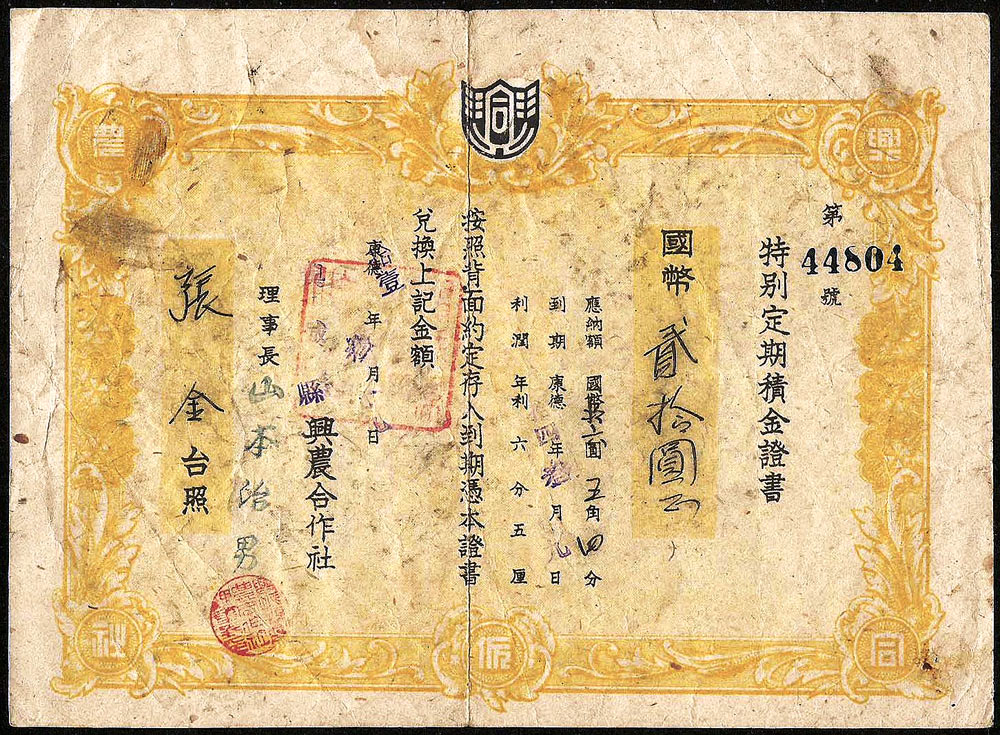 興
農
第 44804 號
特別定期積金證書
國幣 貳拾圓正
應納額 國幣 圓 五角 四分
到期 康德 四年 月 日
利潤 年利 六分五厘
按照背面約定存入到期憑本證書
兌換上記金額
康德 拾壹年 月 日
縣 興農合作社
理事長 山本治男
張金台照
合
作
社